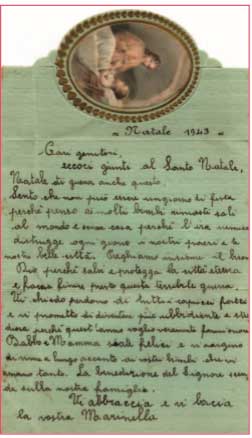 „ Natale 1943 „
Cari genitori,
eccoci giunti al Santo Natale,
Natale di guerra anche questo.
Sento che non può essere un giorno di festa
perchè penso ai molti bimbi rimasti soli
al mondo e senza casa perchè l'ira nemica
distrugge ogni giorno i nostri paesi e le
nostre belle città. Preghiamo insieme il buon
Dio, perchè salvi e protegga la città eterna
e faccia finire presto questa terribile guerra.
Vi chiedo perdono di tutti i capricci fatti
e vi prometto di diventare più ubbidiente e
perchè quest'anno voglio veramente
Babbo e Mamma siate felici e vi auguro
di vivere a lungo accanto ai vostri bimbi che vi
amano tanto. La benedizione del Signore scenda
sulla nostra famiglia.
Vi abbraccia e vi bacia
la vostra Marinella